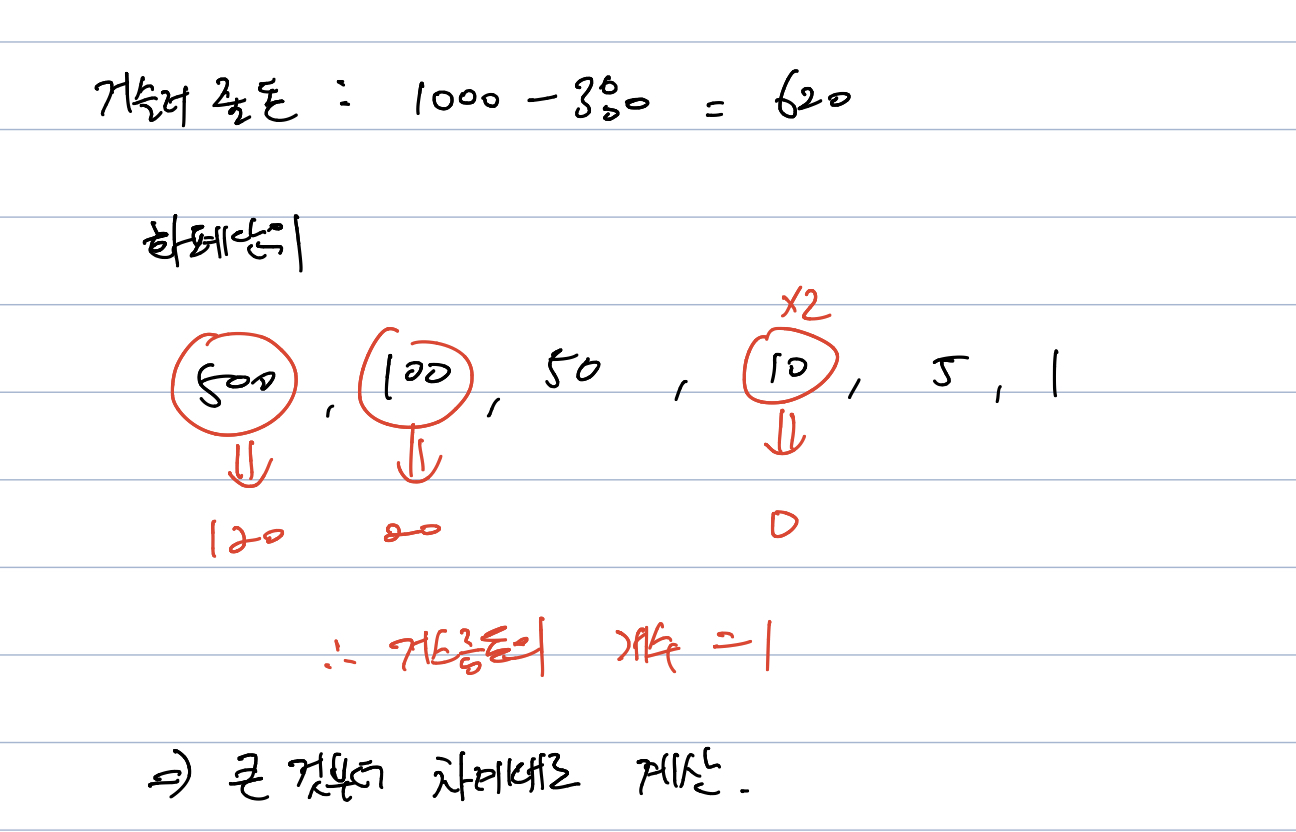 거슬러 줄 돈 : 1000 - 380 = 620
화폐단위
x2
500, 100, 50, 10, 5, 1
⇓ ⇓ ⇓
120 20 0
∴ 거스름돈의 개수 = 1
⇒ 큰 것부터 차례대로 계산.